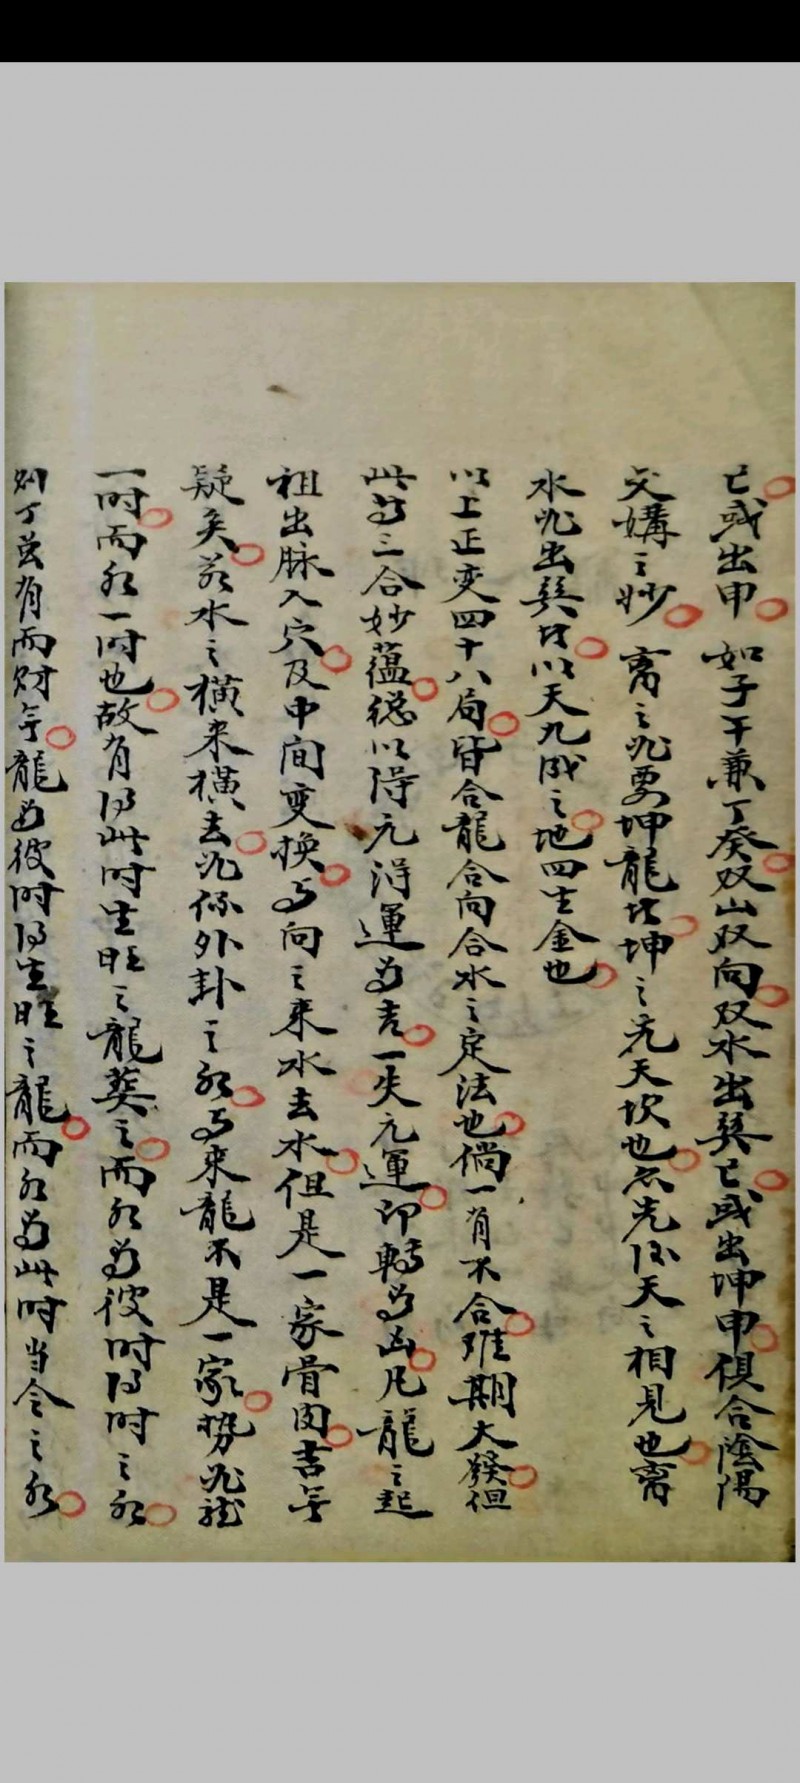 巳或出申如子午兼丁癸双山双向双水出巽巳或出坤申俱合陰陽
交媾之妙離之水要坤龍坎坤之先天坎也亦先後天之相見也離
水必出巽以天九成之地四生金也
以上正变四十八局皆合龍合向合水之定法也倘一有不合难期大發但
此為三合妙蘊总以得元得運为吉一失元運即轉为凶凡龍之起
祖出脉入穴及中間变换与向之来水去水但是一家骨肉吉無
疑矣若水之横来横去必係外卦之水与来龍不是一家势必龍
一时而水一时也故有得此时生旺之龍葬之而水为彼时得时之水
则丁虽有而财無龍为彼时得生旺之龍而水为此时当令之水